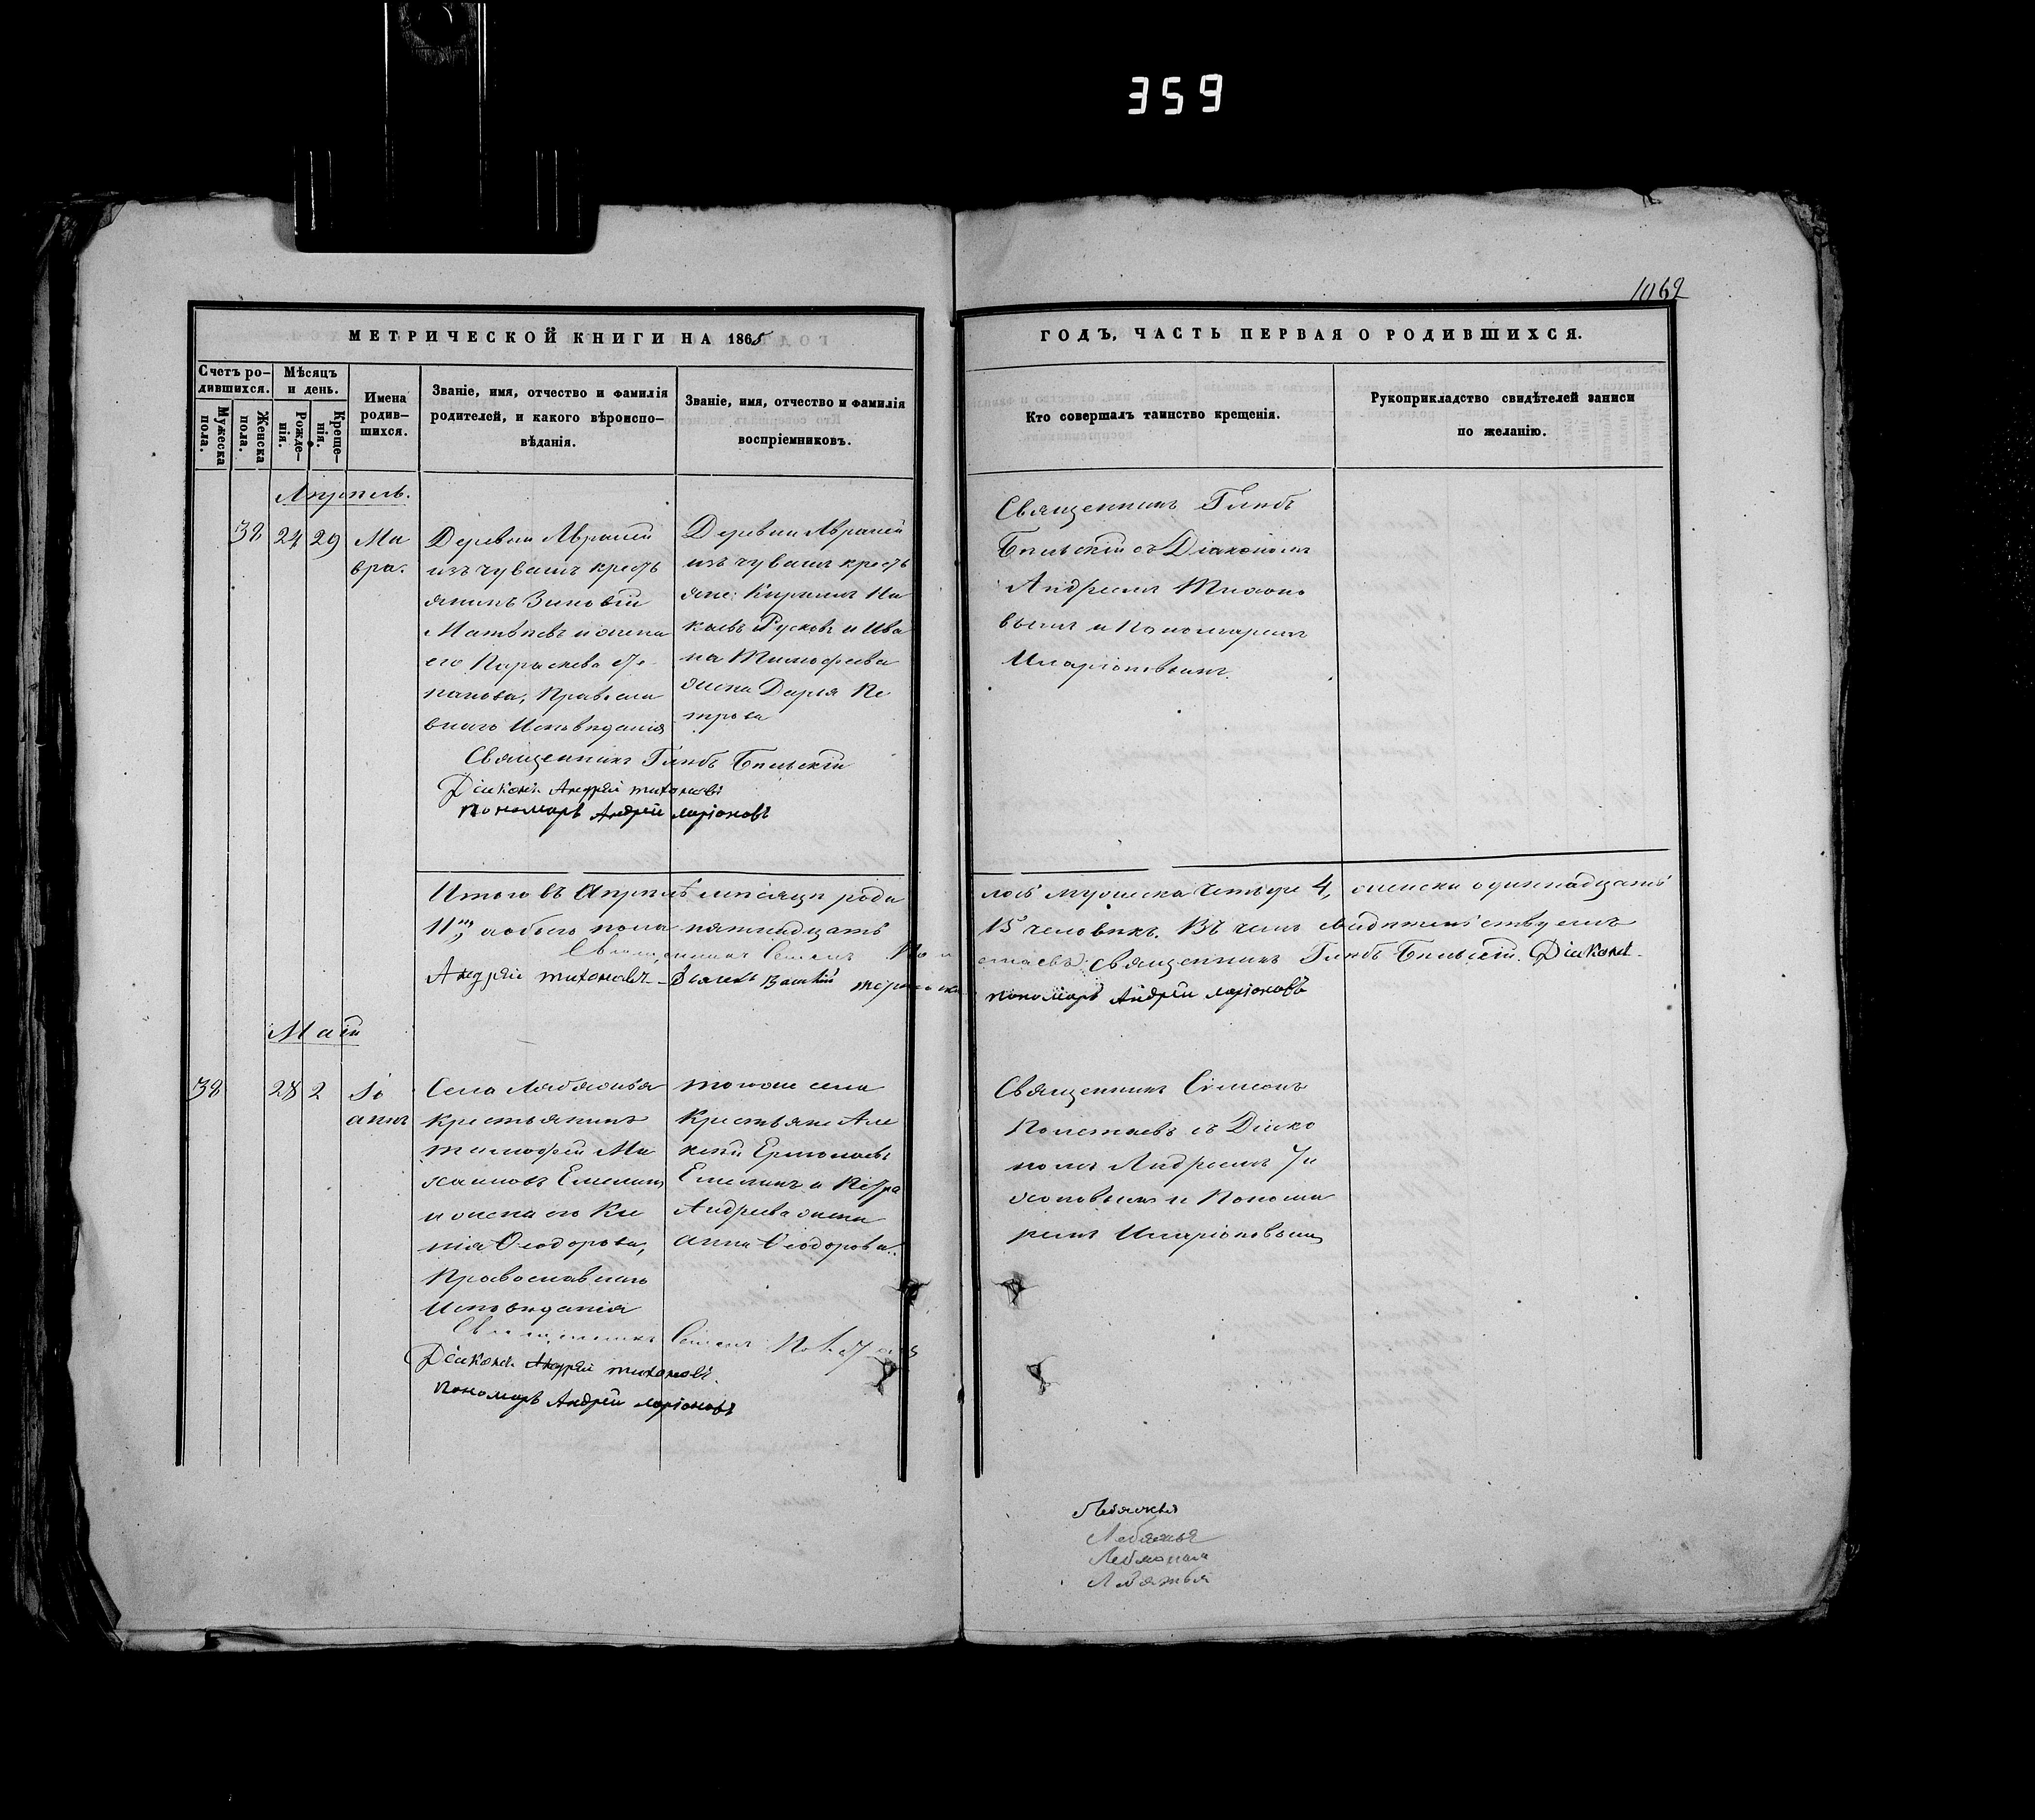 359
1062
МЕТРИЧЕСКОЙ КНИГИ НА 1865
ГОДЪ, ЧАСТЬ ПЕРВАЯ О РОДИВШИХСЯ.
Счетъ ро-
дившихся.
Мужеска
пола.
Женска
пола.
Мѣсяцъ
и день.
Рожде-
нія.
Креще-
нія.
Имена
родив-
шихся.
Званіе, имя, отчество и фамилія
родителей, и какого вѣроиспо-
вѣданія.
Званіе, имя, отчество и фамилія
воспріемниковъ.
Кто совершалъ таинство крещенія.
Рукоприкладство свидѣтелей записи
по желанію.
Апрель.
32
24
29
Ма
вра.
Деревни Авралей
изъ чувашъ кресть
янинъ Зиновій
Матвѣевъ и жена
его Параскева Сте
панова, Правосла
внаго Исповѣданія
Деревни Авралей
изъ чувашъ кресть
яне: Кириллъ
Русковъ и Ива
на Тимофеева
жена Дарья Пе
трова
Священникъ Глѣбъ
Бѣльскій съ Діакономъ
Андреемъ Тихоно
вымъ и Пономаремъ
Иларіоновымъ.
Священникъ Глѣбъ Бѣльскій
Діаконъ Андрей тихоновъ
пономарь Андрей ларіоновъ
Итого въ Апрѣлѣ мѣсяцѣ роди
лось мужеска четыре 4, женска одиннадцать
11, обоего пола пятнадцать
15 человѣкъ. Въ чемъ свидѣтельствуемъ
Священникъ Симеонъ Полетаевъ: священникъ Глѣбъ Бѣльскій. Діаконъ
Андрей тихоновъ
пономарь Андрей ларіоновъ
Май
32
28
2
Іо
аннъ
Села Лебяжья
крестьянинъ
тимофей Ми
хаиловъ Емелинъ
и жена его Ксе
нія Ѳеодорова,
Православнаго
Исповѣданія
тогоже села
Крестьяне Але
ксѣй Ермолаевъ
Емелинъ и Петра
Андреева жена
анна Ѳеодорова.
Священникъ Симеонъ
Полетаевъ съ Діако
номъ Андреемъ Ти
хоновымъ и Понома
ремъ Иларіоновымъ
Священникъ Симеонъ Полетаевъ
Діаконъ Андрей тихоновъ.
пономарь Андрей ларіоновъ
Лебяжья
Лебяжья
Лебяжья